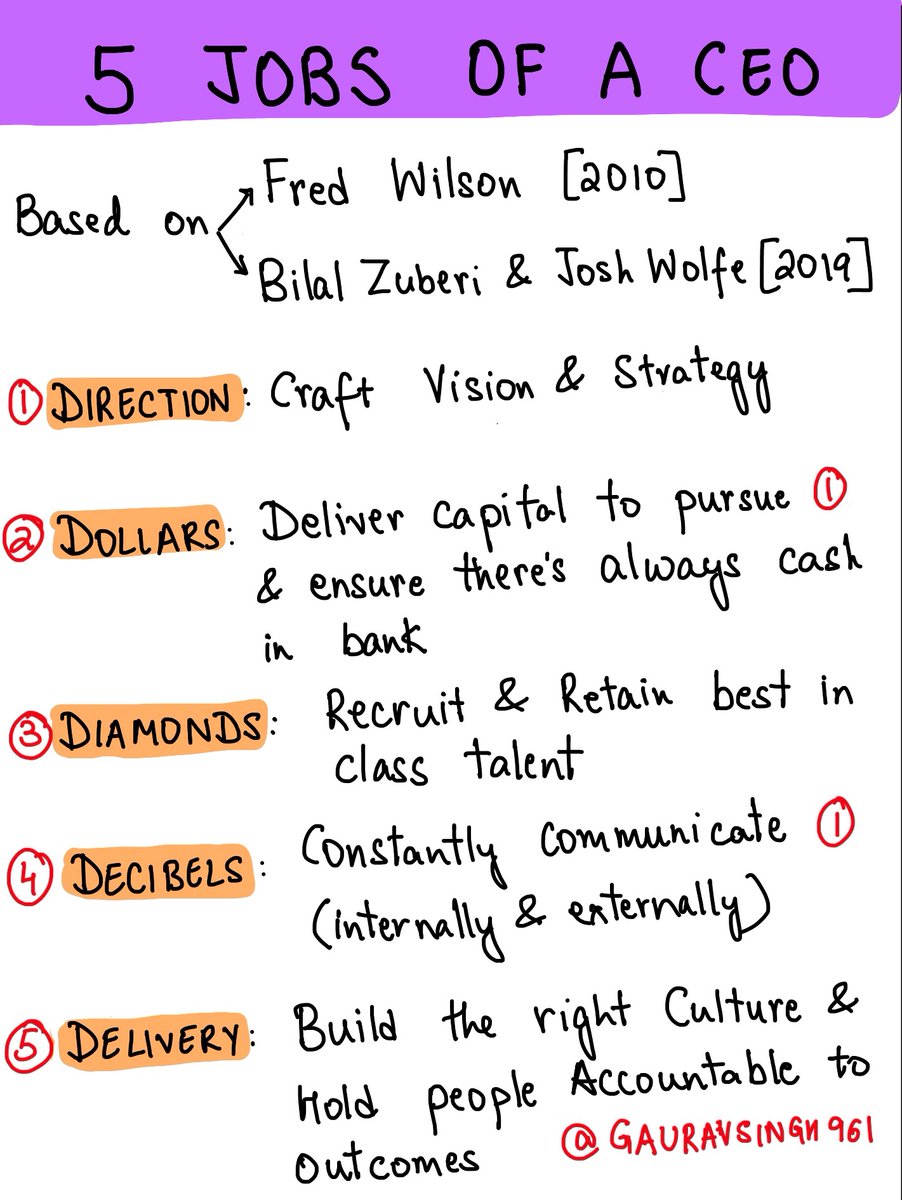 5 JOBS OF A CEO
Based on
Fred Wilson [2010]
Bilal Zuberi & Josh Wolfe [2019]
① DIRECTION: Craft Vision & Strategy
② DOLLARS: Deliver capital to pursue ①
& ensure there's always cash
in bank
③ DIAMONDS: Recruit & Retain best in
class talent
④ DECIBELS: Constantly communicate ①
(internally & externally)
⑤ DELIVERY: Build the right Culture &
Hold people Accountable to
Outcomes
@GAURAVSINGH961